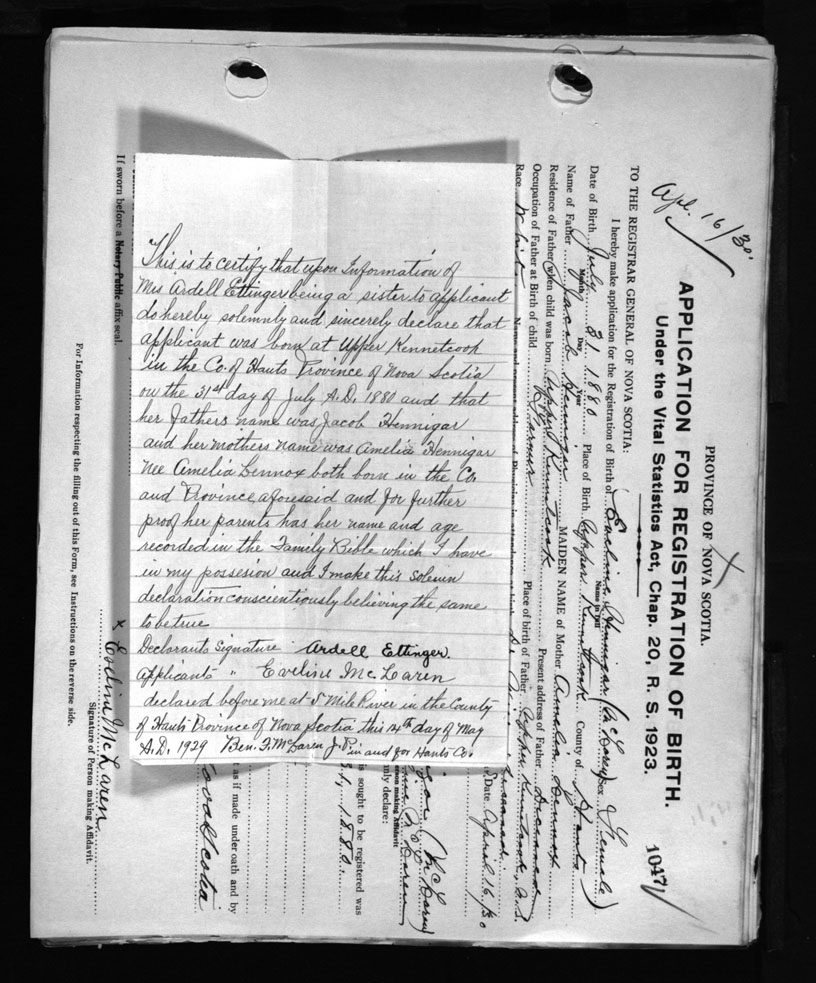 Apl. 16/30.
PROVINCE OF NOVA SCOTIA.
APPLICATION FOR REGISTRATION OF BIRTH.
Under the Vital Statistics Act, Chap. 20, R. S. 1923.
1047
TO THE REGISTRAR GENERAL OF NOVA SCOTIA:
I hereby make application for the Registration of Birth of Evelina Hennigar (McLaren) Sex Female
Name in full
Date of Birth July 31 1880 Place of Birth Upper Kennetcook County of Hants
Month Day Year
Name of Father Jacob Hennigar MAIDEN NAME of Mother Amelia Lennox
Residence of Father (when child was born) Upper Kennetcook Present address of Father Deceased
Occupation of Father at Birth of child Farmer Place of birth of Father Upper Kennetcook, N.S.
Race White
Date April 16/30
This is to certify that upon Information of
Mrs Ardell Ettinger being a sister to applicant
do hereby solemnly and sincerely declare that
applicant was born at Upper Kennetcook
in the Co. of Hants Province of Nova Scotia
on the 31st day of July A.D. 1880 and that
her Fathers name was Jacob Hennigar
and her mothers name was Amelia Hennigar
nee Amelia Lennox both born in the Co.
and Province aforesaid and for further
proof her parents has her name and age
recorded in the Family Bible which I have
in my possesion and I make this solemn
declaration conscientiously believing the same
to be true
Declarants Signature Ardell Ettinger.
Applicants " Eveline McLaren
declared before me at 5 Mile River in the County
of Hants Province of Nova Scotia this 14th day of May
A.D. 1929 Ben. F. McLaren J.P. in and for Hants Co.
McLaren)
person making Affidavit
nly declare:
is sought to be registered was
1880.
t as if made under oath and by
Nova Scotia
x Evelina McLaren
Signature of Person making Affidavit.
If sworn before a Notary Public affix seal.
For Information respecting the filling out of this Form, see Instructions on the reverse side.